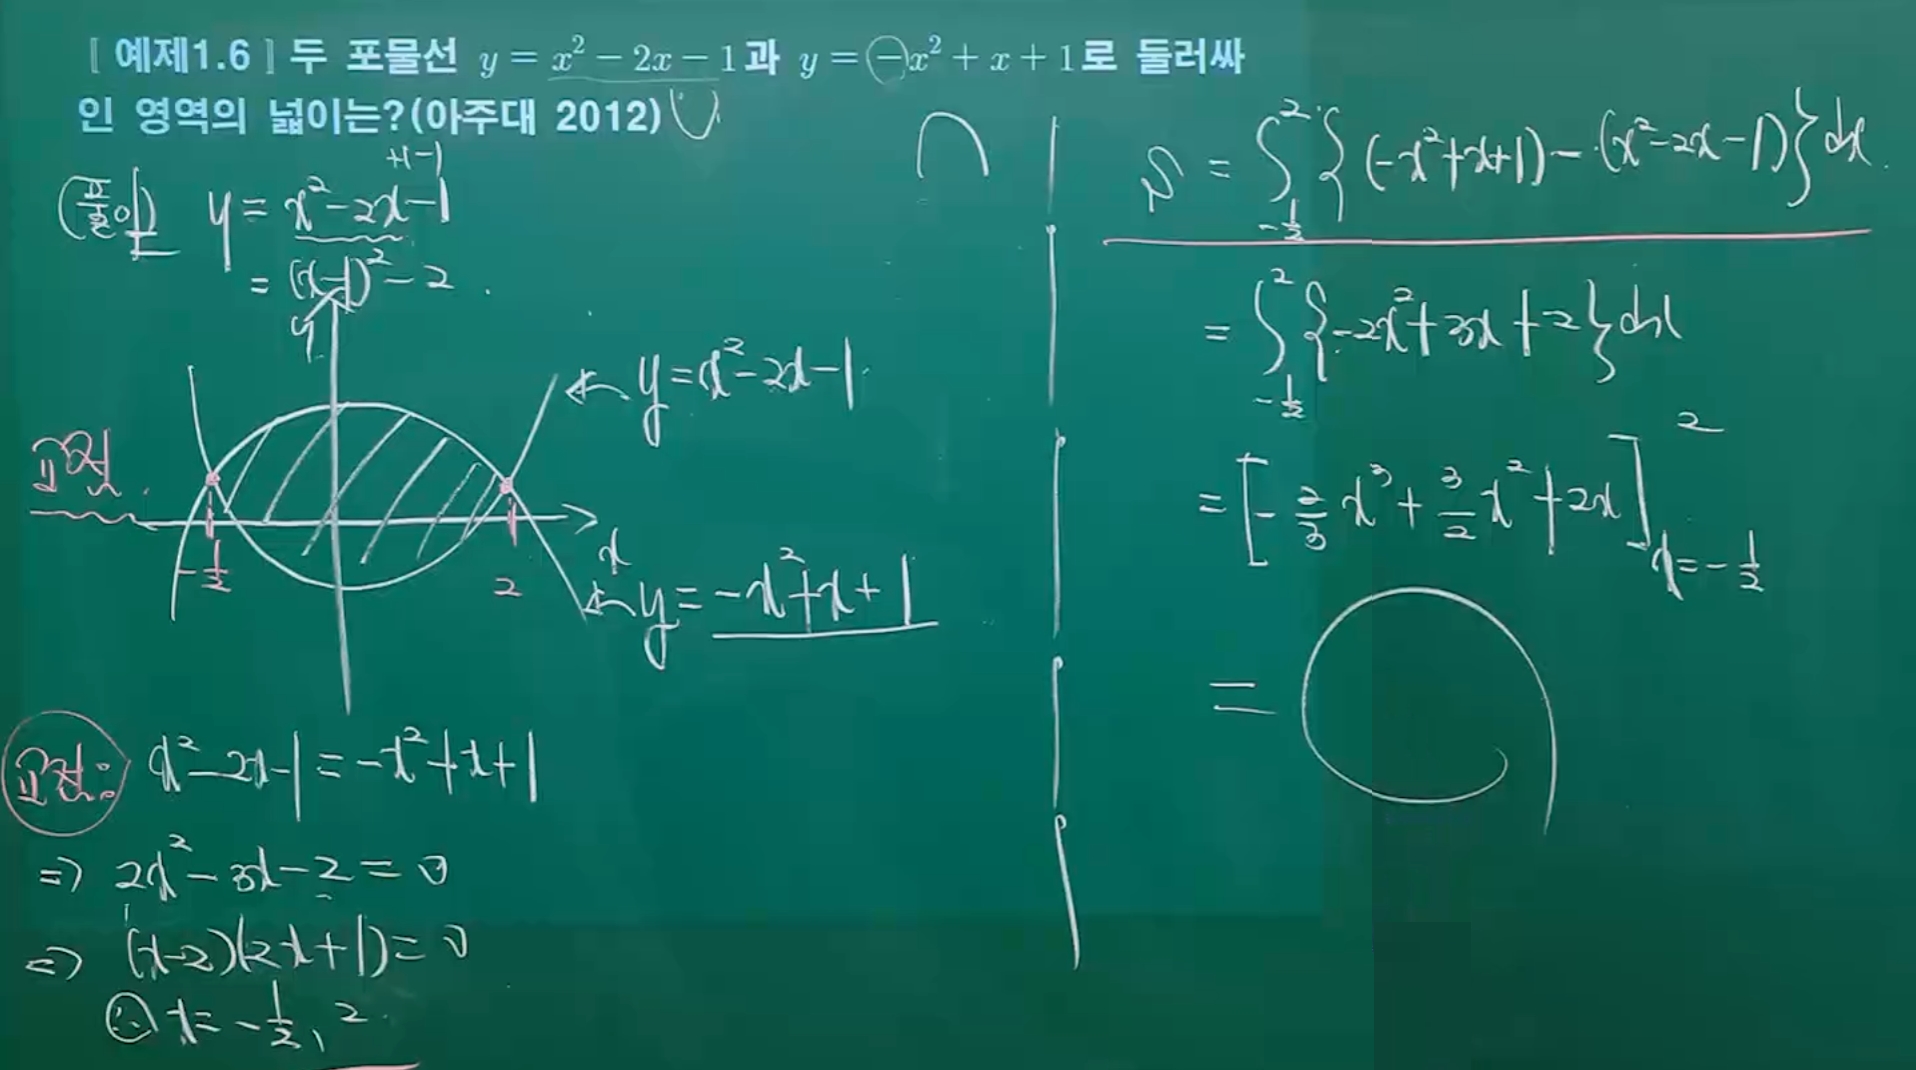 [ 예제1.6 ] 두 포물선 y = x² − 2x − 1과 y = −x² + x + 1로 둘러싸
인 영역의 넓이는?(아주대 2012)
+1−1
(풀이) y = x² − 2x − 1
= (x−1)² − 2
y
y = x² − 2x − 1
교점
−1/2
2
x
y = −x² + x + 1
교점: x² − 2x − 1 = −x² + x + 1
⇒ 2x² − 3x − 2 = 0
⇒ (x−2)(2x+1) = 0
∴ x = −1/2, 2
S = ∫_{−1/2}^{2} {(−x²+x+1) − (x²−2x−1)} dx
= ∫_{−1/2}^{2} {−2x² + 3x + 2} dx
= [−2/3 x³ + 3/2 x² + 2x]_{x=−1/2}^{2}
=